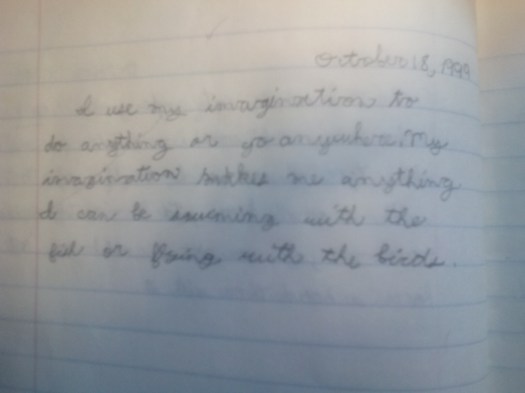 October 18, 1999
I use my imagination to
do anything or go anywhere. My
imagination makes me anything
I can be swimming with the
fish or flying with the birds.